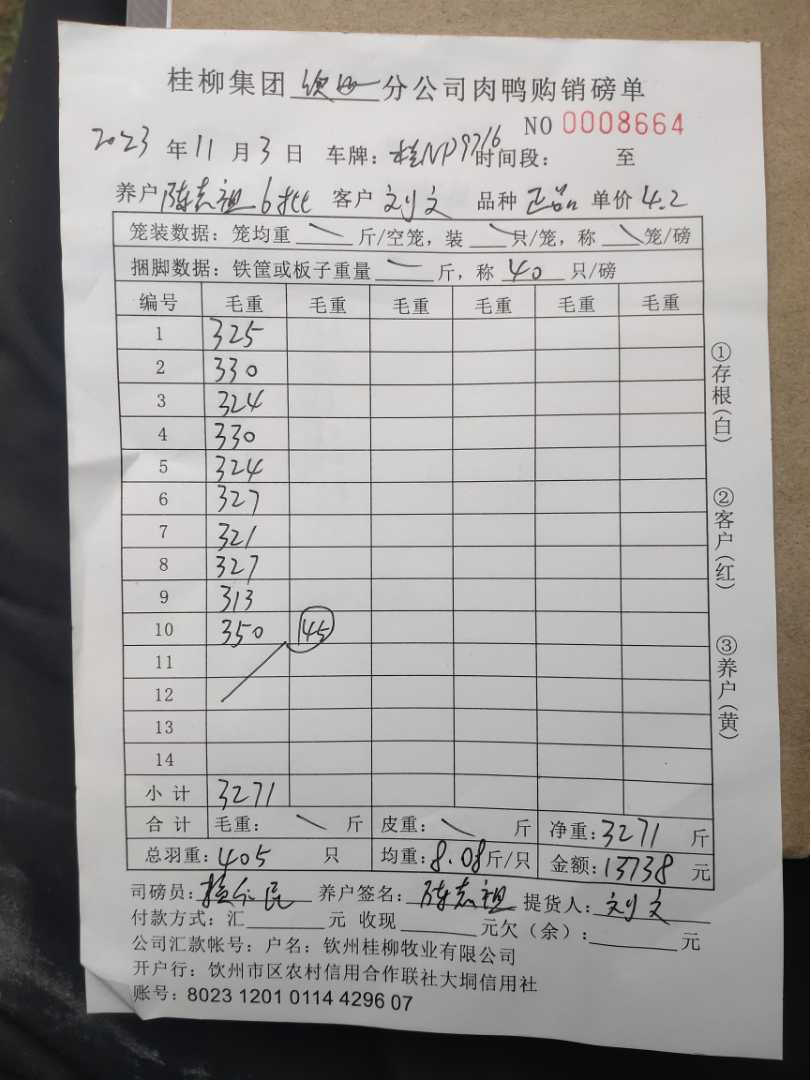 桂柳集团 钦州 分公司肉鸭购销磅单
NO 0008664
2023 年 11 月 3 日 车牌：桂NP9716 时间段： 至
养户 陈志祖 6批 客户 刘文 品种 正品 单价 4.2
笼装数据：笼均重 斤/空笼，装 只/笼，称 笼/磅
捆脚数据：铁筐或板子重量 斤，称 40 只/磅
编号 毛重 毛重 毛重 毛重 毛重 毛重
1 325
2 330
3 324
4 330
5 324
6 327
7 321
8 327
9 313
10 350 45
11
12
13
14
小计 3271
合计 毛重： 斤 皮重： 斤 净重：3271 斤
总羽重：405 只 均重：8.08 斤/只 金额：13738 元
司磅员： 养户签名：陈志祖 提货人：刘文
付款方式：汇 元 收现 元欠（余）： 元
公司汇款帐号：户名：钦州桂柳牧业有限公司
开户行：饮州市区农村信用合作联社大垌信用社
账号：8023 1201 0114 4296 07
①存根(白)
②客户(红)
③养户(黄)